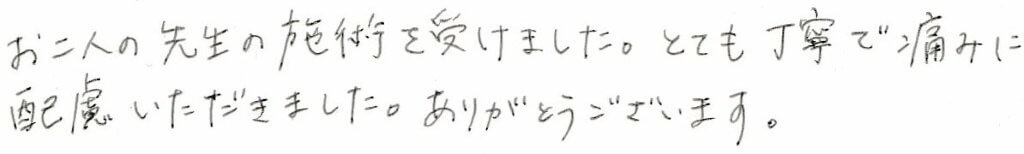 お二人の先生の施術を受けました。とても丁寧で痛みに
配慮いただきました。ありがとうございます。